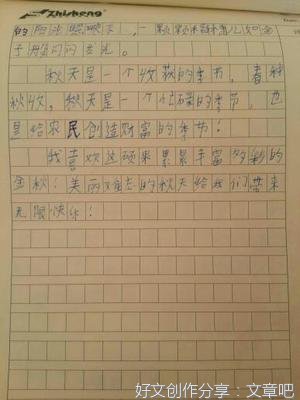 Zhisheng
的阳光照耀下，一颗颗稻穗儿如金
子般闪闪发光。
秋天是一个收获的季节，春种
秋收，秋天是一个忙碌的季节，也
是给农民创造财富的季节！
我喜欢这硕果累累丰富多彩的
金秋！美丽难忘的秋天给我们带来
无限快乐！
好文创作分享：文章吧